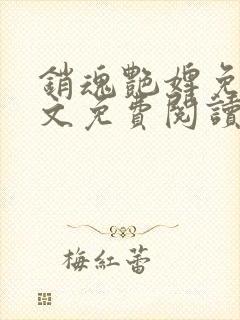 銷魂艷婢免
文免費閱讀
梅紅蕾